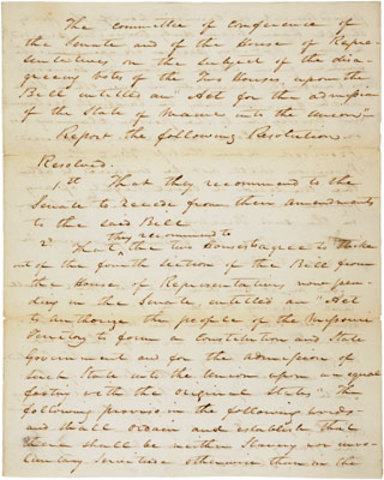 The committee of conference of
the Senate and of the House of Repre-
sentatives on the subject of the disa-
greeing votes of the Two Houses, upon the
Bill entitled an "Act for the admission
of the State of Maine into the Union"
Report the following Resolution
Resolved.
1st That they recommend to the
Senate to recede from their amendments
to the said Bill
they recommend to
2d That the two Houses agree to strike
out of the fourth section of the Bill from
the House of Representatives now pen-
ding in the Senate, entitled an "Act
to authorize the people of the Missouri
Territory to form a Constitution and State
Government and for the admission of
such State into the Union upon an equal
footing with the original States" The
following proviso in the following words
and shall ordain and establish that
there shall be neither Slavery nor invo-
luntary servitude otherwise than in the